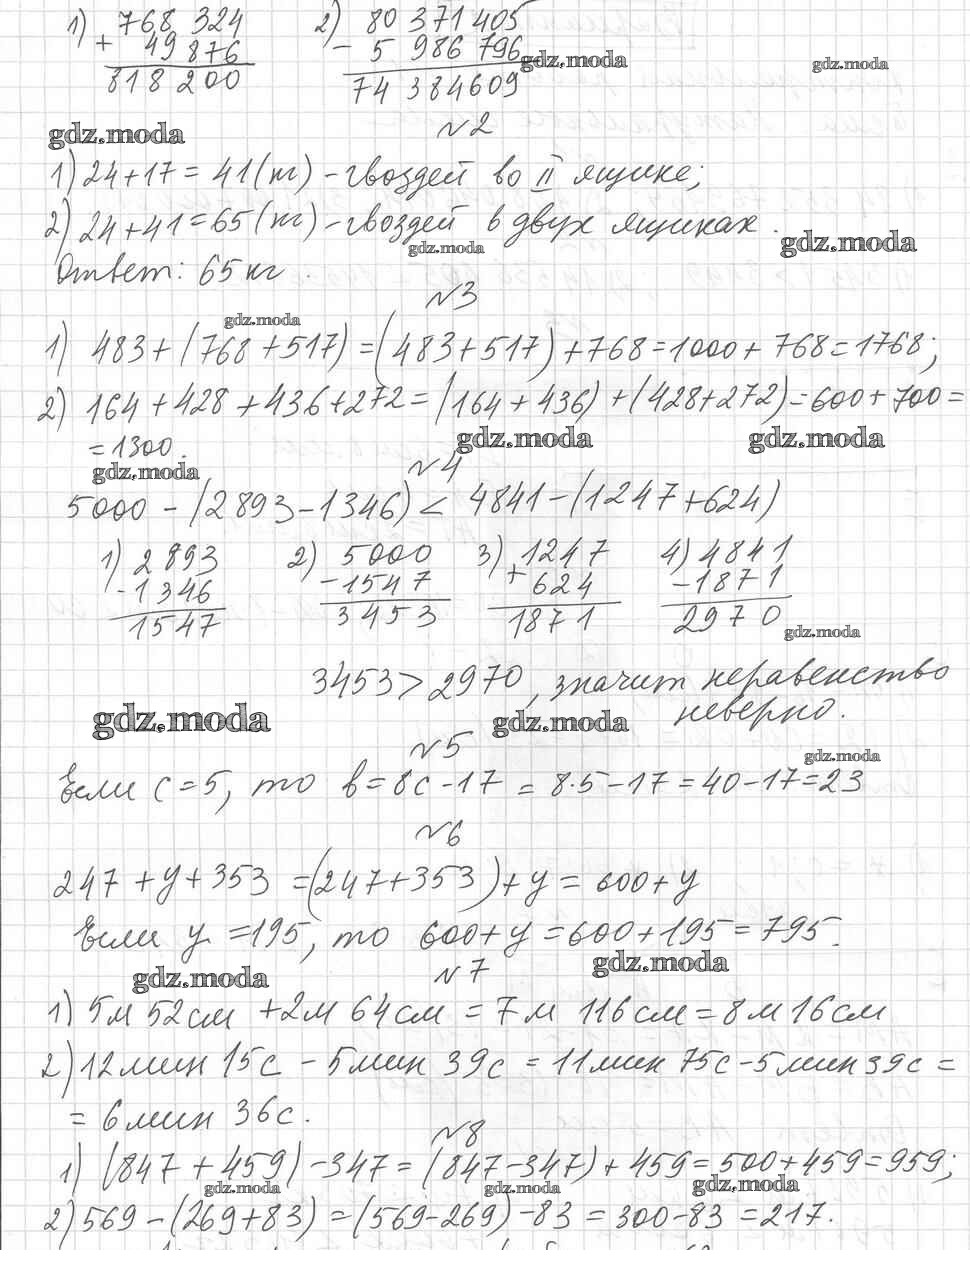 1) 768 324 2) 80 371 405
+ 49 876 - 5 986 796
818 200 74 384609
gdz.moda gdz.moda
gdz.moda №2
1) 24+17 = 41(кг) - гвоздей во II ящике;
2) 24+41=65(кг) - гвоздей в двух ящиках.
gdz.moda gdz.moda
Ответ: 65 кг.
№3
gdz.moda
1) 483+(768+517)=(483+517)+768=1000+768=1768;
2) 164+428+436+272=(164+436)+(428+272)=600+700=
=1300.
gdz.moda gdz.moda
gdz.moda №4
5000-(2893-1346)<4841-(1247+624)
1) 2893 2) 5000 3) 1247 4) 4841
-1346 -1547 +624 -1871
1547 3453 1871 2970
gdz.moda
3453>2970, значит неравенство
неверно.
gdz.moda gdz.moda
№5
gdz.moda
Если c=5, то b=8c-17 = 8·5-17=40-17=23
№6
247+y+353 =(247+353)+y=600+y
Если y=195, то 600+y=600+195=795.
gdz.moda №7 gdz.moda
1) 5м 52см +2м 64см = 7м 116см=8м16см
2) 12мин 15с - 5мин 39с = 11мин 75с-5мин39с =
= 6мин 36с.
№8
1) (847+459)-347=(847-347)+459=500+459=959;
gdz.moda gdz.moda gdz.moda
2) 569-(269+83)=(569-269)-83=300-83=217.